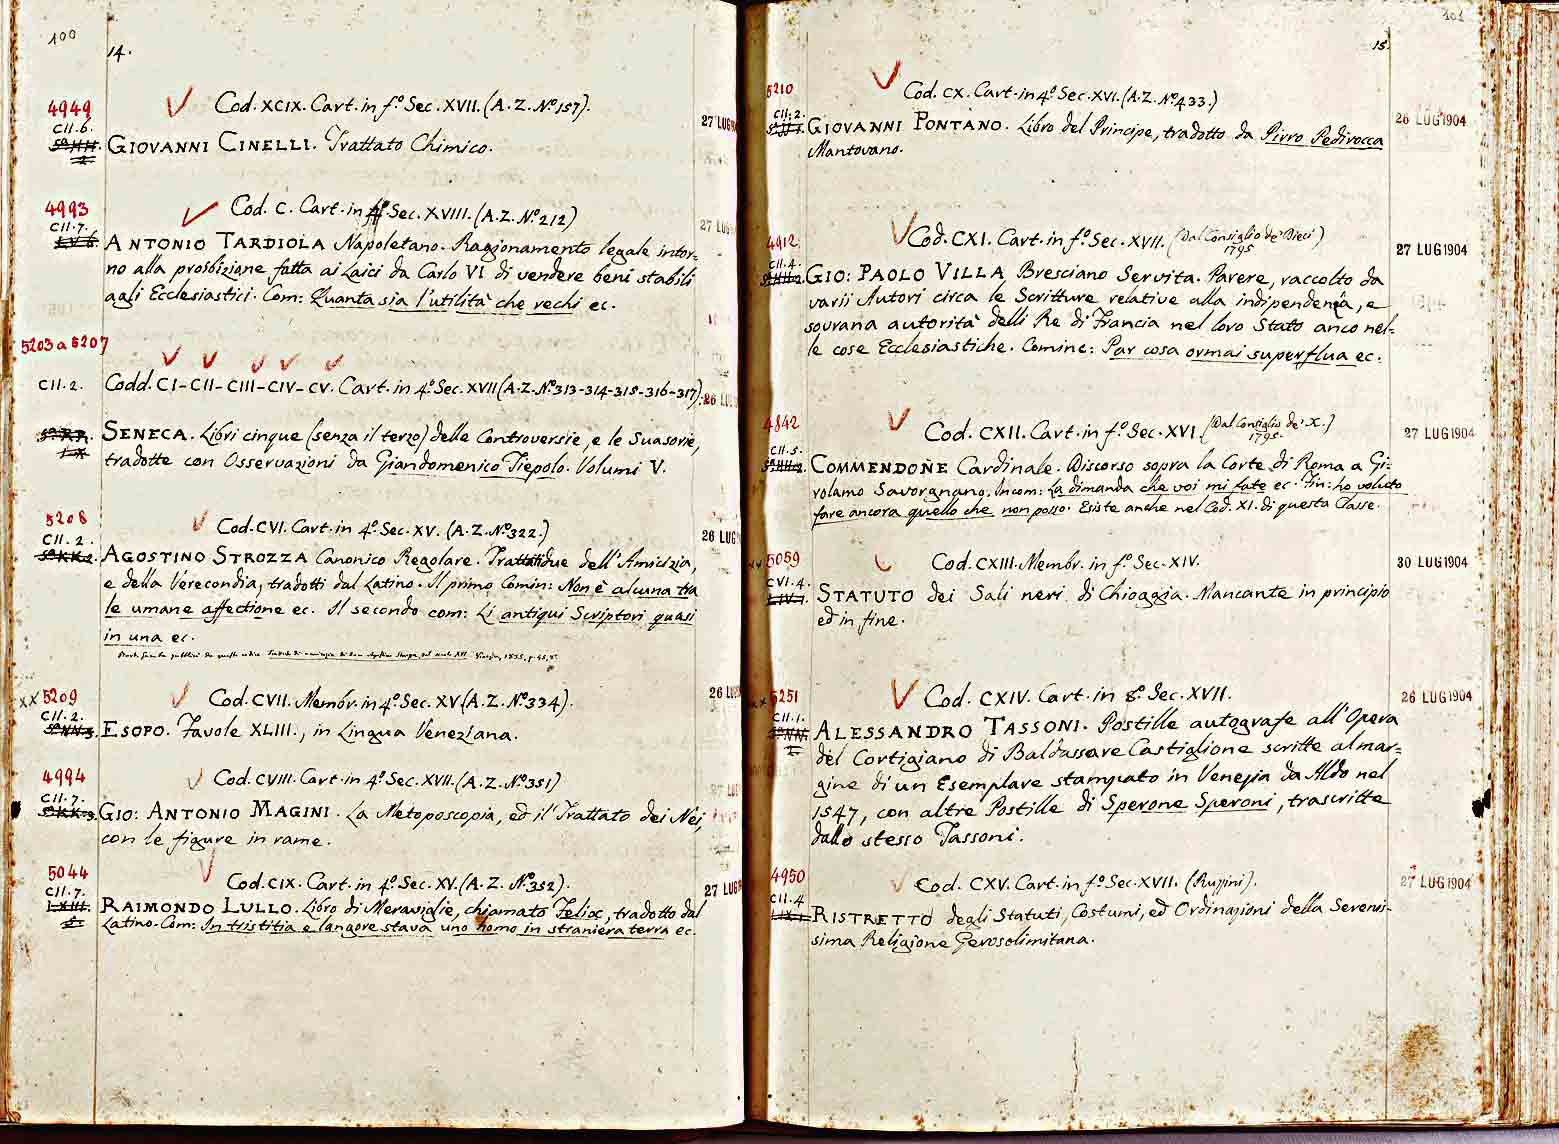 100
14.
4949
Cod. XCIX. Cart. in f.º Sec. XVII. (A. Z. Nº 157).
27 LUG
CII. 6.
GIOVANNI CINELLI. Trattato Chimico.
4993
Cod. C. Cart. in fº Sec. XVIII. (A. Z. Nº 212)
27 LUG
CII. 7.
ANTONIO TARDIOLA Napoletano. Ragionamento legale intor=
no alla proibizione fatta ai Laici da Carlo VI di vendere beni stabili
agli Ecclesiastici. Com: Quanta sia l'utilità che rechi ec.
5203 a 5207
CII. 2.
Codd. CI-CII-CIII-CIV-CV. Cart. in 4º Sec. XVII (A. Z. Nº 313-314-315-316-317).
26 LUG
SENECA. Libri cinque (senza il terzo) delle Controversie, e le Suasorie,
tradotte con Osservazioni da Giandomenico Tiepolo. Volumi V.
5208
Cod. CVI. Cart. in 4º Sec. XV. (A. Z. Nº 322.)
26 LUG
CII. 2.
AGOSTINO STROZZA Canonico Regolare. Trattati due dell'Amicizia,
e della Verecondia, tradotti dal Latino. Il primo Comin: Non è alcuna tra
le umane affectione ec. Il secondo com: Li antiqui Scriptori quasi
in una ec.
xx 5209
Cod. CVII. Membr. in 4º Sec. XV. (A. Z. Nº 334).
26 LUG
CII. 2.
ESOPO. Favole XLIII., in Lingua Veneziana.
4994
Cod. CVIII. Cart. in 4º Sec. XVII. (A. Z. Nº 351)
27 LUG
CII. 7.
GIO: ANTONIO MAGINI. La Metoposcopia, ed il Trattato dei Nei,
con le figure in rame.
5044
Cod. CIX. Cart. in 4º Sec. XV. (A. Z. Nº 352).
27 LUG
CII. 7.
RAIMONDO LULLO. Libro di Meraviglie, chiamato Felice, tradotto dal
Latino. Com: In tristitia e langore stava uno homo in straniera terra ec.
101
15.
5210
Cod. CX. Cart. in 4º Sec. XVI. (A. Z. Nº 433.)
CII. 2.
26 LUG 1904
GIOVANNI PONTANO. Libro del Principe, tradotto da Pirro Pedirocca
Mantovano.
4912
Cod. CXI. Cart. in fº Sec. XVII. (Dal Consiglio de' Dieci)
1795
27 LUG 1904
CII. 4.
GIO: PAOLO VILLA Bresciano Servita. Parere, raccolto da
varii Autori circa le Scritture relative alla indipendenza, e
sovrana autorità delli Re di Francia nel loro Stato anco nel=
le cose Ecclesiastiche. Comine: Par cosa ormai superflua ec.
4842
Cod. CXII. Cart. in fº Sec. XVI. (Dal Consiglio de' X.)
1795.
27 LUG 1904
CII. 5.
COMMENDONE Cardinale. Discorso sopra la Corte di Roma a Gi=
rolamo Savorgnano. Incom: La dimanda che voi mi fate ec. Fin: ho voluto
fare ancora quello che non posso. Esiste anche nel Cod. XI. di questa Classe.
xx 5059
Cod. CXIII. Membr. in fº Sec. XIV.
30 LUG 1904
CVI. 4.
STATUTO dei Sali neri di Chioggia. Mancante in principio
ed in fine.
xx 5251
Cod. CXIV. Cart. in 8º Sec. XVII.
26 LUG 1904
CII. 1.
ALESSANDRO TASSONI. Postille autografe all'Opera
del Cortigiano di Baldassare Castiglione scritte al mar=
gine di un Esemplare stampato in Venezia da Aldo nel
1547, con altre Postille di Sperone Speroni, trascritte
dallo stesso Tassoni.
4950
Cod. CXV. Cart. in fº Sec. XVII. (Ruzini).
27 LUG 1904
CII. 4
RISTRETTO degli Statuti, Costumi, ed Ordinazioni della Serenis=
sima Religione Gerosolimitana.